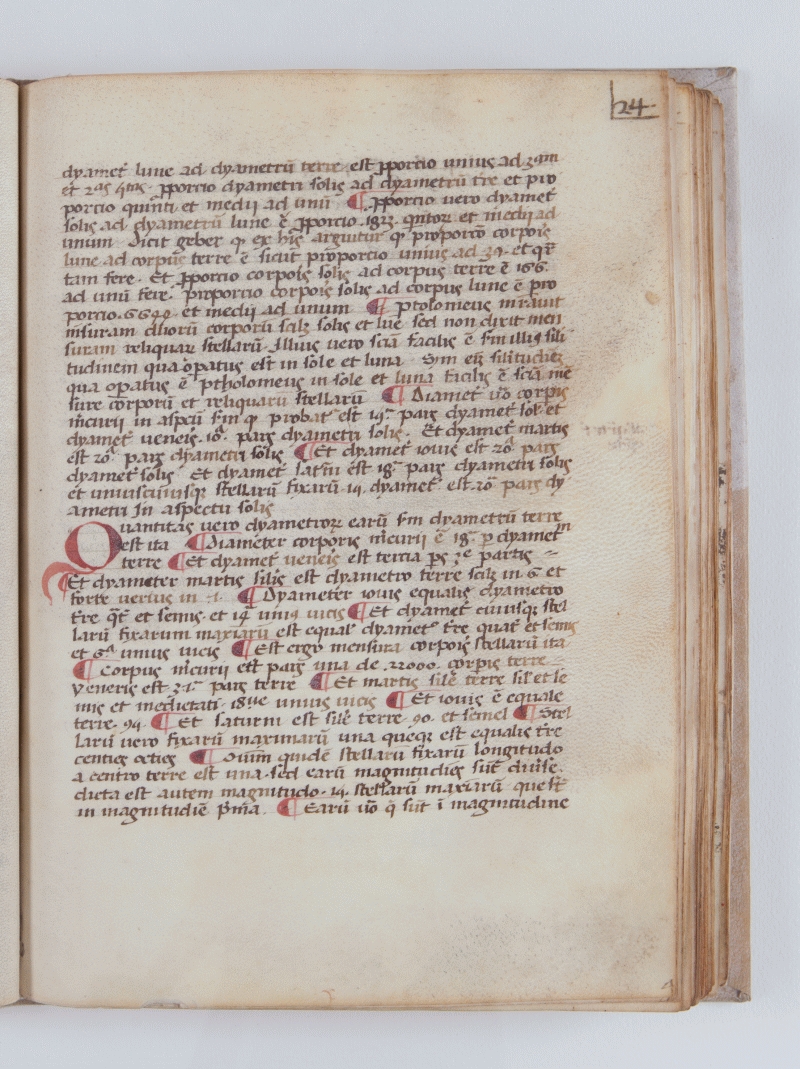 24
dyamet̃ lune ad dyametrũ terre est ꝓporcio unius ad 3am
et 2as ꝓporcio dyametri solis ad dyametrũ tre et pro
porcio quinti et medii ad unũ ¶ ꝓporcio vero dyamet̃
solis ad dyametrũ lune ẽ ꝓporcio .18. et medii ad
unum dicit geber ꝙ ex his arguitur ꝙ proporcõ corporis
lune ad corpus terre ẽ sicut proporcio unius ad 39 et qr̃
tam fere. Et ꝓporcio corporis solis ad corpus terre ẽ 166.
ad unũ fere. proporcio corporis solis ad corpus lune ẽ pro
porcio .6644. et medii ad unum ¶ ptolomeus
mẽsuram duorũ corporũ scilz solis et lũe sed non dixit men
suram reliquarũ stellarũ. Illius vero sciã facilis ẽ scm̃ illã sili
tudinem qua opatus est in sole et luna eñ silitudiẽ
qua opatus ẽ ptholomeus in sole et luna facilis ẽ sciã mẽ
sure corporũ et reliquarũ stellarũ ¶ Diamet̃ ṽo corpis
m̃curii in aspcũ scm̃ ꝙ probat̃ est 14a pars dyamet̃ sol̃ et
dyamet̃ veneris .10. pars dyametri solis. Et dyamet̃ martis
est 20. pars dyametri solis ¶ Et dyamet̃ iovis est 20 pars
dyamet̃ solis Et dyamet̃ sat̃ni est 18a pars dyametri solis
et uniuscuiusqꝫ stellarũ fixarũ dyamet̃. est 20 pars dy
ametri In aspectu solis
Quantitas vero dyametrorꝫ earũ scm̃ dyametrũ terre
est ita ¶ Diameter corporis m̃curii ẽ 18a p dyamet̃
terre ¶ Et dyamet̃ veneris est tercia ps 3e partis =
¶ Et dyameter martis silis est dyametro terre scilz in 6 et
forte verius in .1. ¶ Dyameter iovis equalis dyametro
t̃re qt̃ et semis. et 14 unius vicis ¶ Et dyamet̃ cuiusqꝫ stel
larũ fixarum maxiarũ est equal̃ dyamet̃ t̃re quat̃ et semis
et 6a unius vicis ¶ Est ergo mensura corporis stellarũ ita
¶ Corpus m̃curii est pars una de .22000. corpis terre
Veneris est 31a pars terre ¶ Et martis silẽ terre sil̃ et se
mis et medietati .18ue unius vicis ¶ Et iovis ẽ equale
terre .94. ¶ Et saturni est silẽ terre .90. et semel ¶ Stel
larũ vero fixarũ maximarũ una queqꝫ est equalis t̃re
centies octies ¶ Oũm quidẽ stellarũ fixarũ longitudo
a centro terre est una. sed earũ magnitudiẽs sũt diũse.
dicta est autem magnitudo. 14. stellarũ maxiarũ que st̃
in magnitudiẽ p̃ma. ¶ Earũ ṽo q̃ sũt ĩ magnitudine